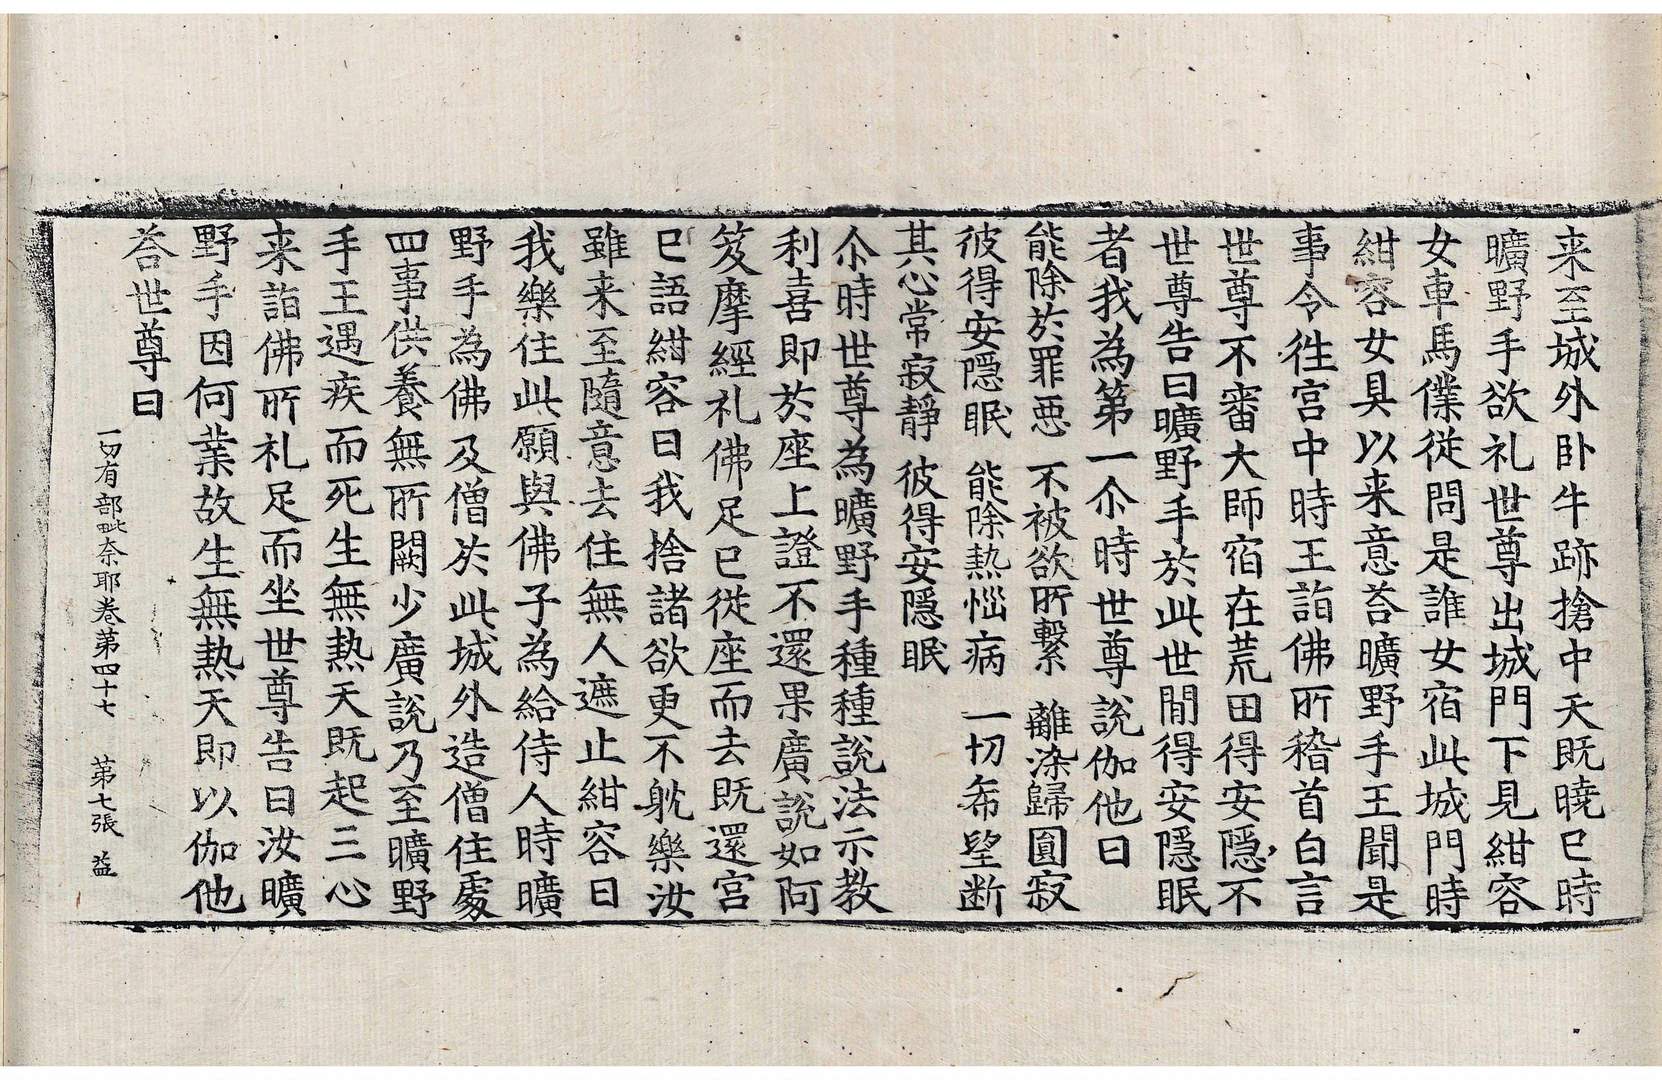 来至城外卧牛跡搶中天既曉已時
曠野手欲礼世尊出城門下見紺容
女車馬僕從問是誰女宿此城門時
紺容女具以来意荅曠野手王聞是
事令徃宫中時王詣佛所稽首白言
世尊不審大師宿在荒田得安隱不
世尊告曰曠野手於此世間得安隱眠
者我為第一尒時世尊說伽他曰
能除於罪惡　不被欲所繫　離染歸圓寂
彼得安隱眠　能除熱惱病　一切希望断
其心常寂靜　彼得安隱眠
尒時世尊為曠野手種種說法示教
利喜即於座上證不還果廣說如阿
笈摩經礼佛足已從座而去既還宮
已語紺容曰我捨諸欲更不躭樂汝
雖来至隨意去住無人遮止紺容曰
我樂住此願與佛子為給侍人時曠
野手為佛及僧於此城外造僧住處
四事供養無所闕少廣說乃至曠野
手王遇疾而死生無熱天既起三心
来詣佛所礼足而坐世尊告曰汝曠
野手因何業故生無熱天即以伽他
荅世尊曰
一切有部毗奈耶卷第四十七　第七張　益